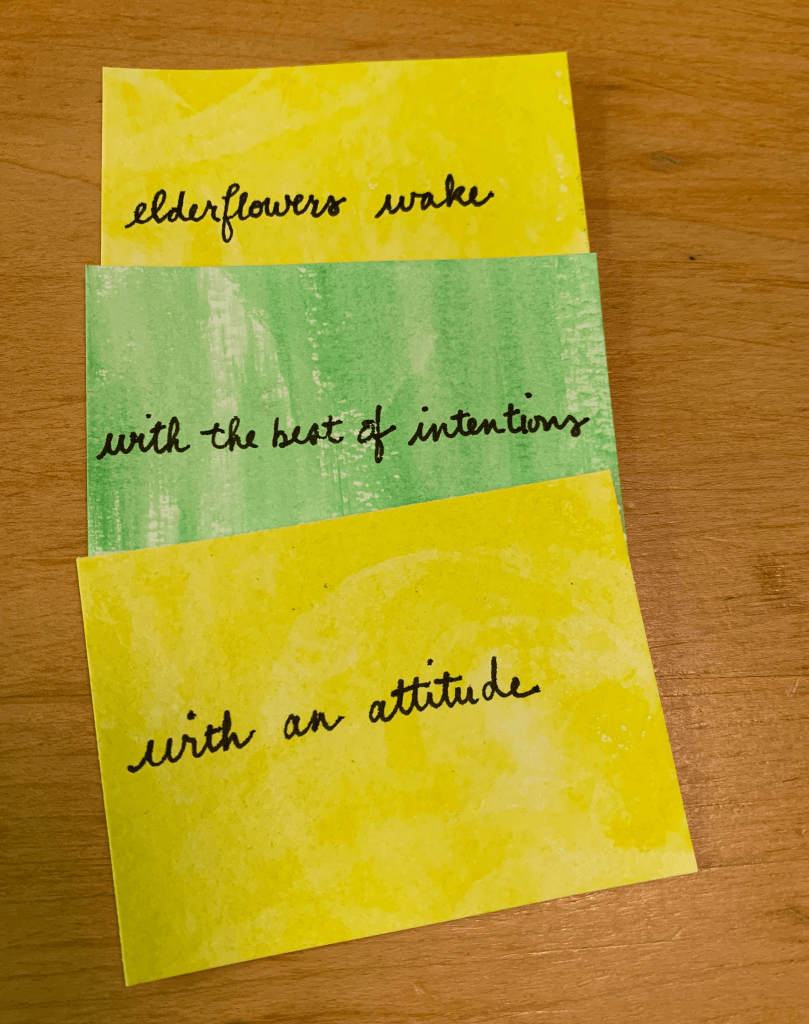 elderflowers wake
with the best of intentions
with an attitude